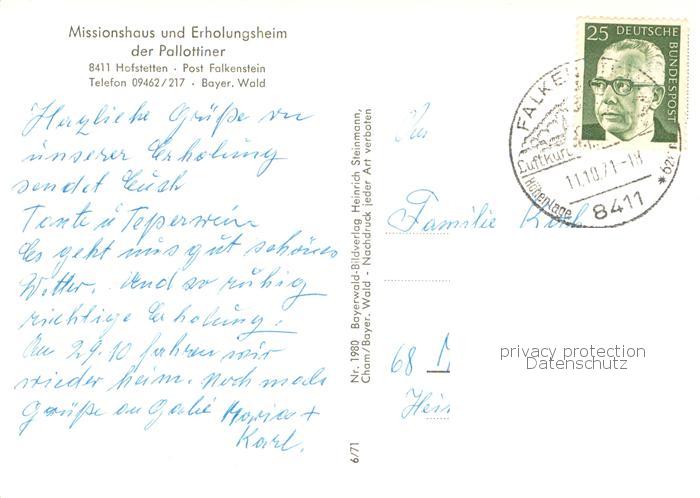 Missionshaus und Erholungsheim
der Pallottiner
8411 Hofstetten · Post Falkenstein
Telefon 09462/217 · Bayer. Wald
Herzliche Grüße von
unserer Erholung
sendet Euch
Tante u
Es geht uns gut schönes
Wetter. und so ruhig
richtige Erholung.
Am 29.10 fahren wir
wieder heim. Noch mals
Grüße an Gabi Maria +
Karl.
Nr. 1980 Bayerwald-Bildverlag Heinrich Steinmann,
Cham/Bayer. Wald - Nachdruck jeder Art verboten
6/71
25 DEUTSCHE
BUNDESPOST
FALKEN
Luftkur
Höhenlage
11.10.71-18
8411
An
Familie Karl
68
privacy protection
Datenschutz